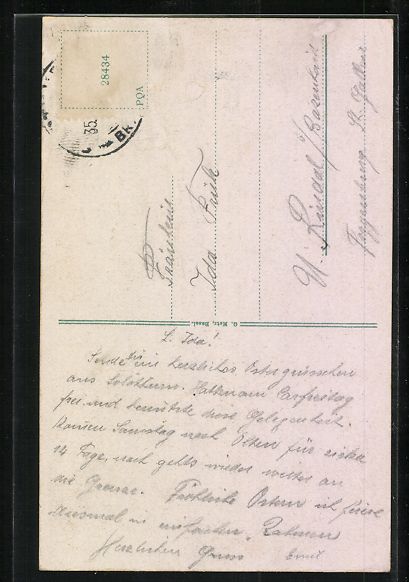 28434
PQA
35
BR
Fräulein
Ida Frick
U. Lindaal / Gazenhaid
Toggenburg St. Gallen
G. Metz, Basel.
L. Ida!
Sende Dir ein herzliches Ostergrüsschen
aus Solothurn. Hatten am Carfreitag
frei und benützte diese Gelegenheit.
Samstag nach Olten für
14 Tage, nach gehts wieder weiter an
die Grenze. Fröhliche Ostern ich feiere
diesmal in einfachem Rahmen
Herzlichen Gruss Emil